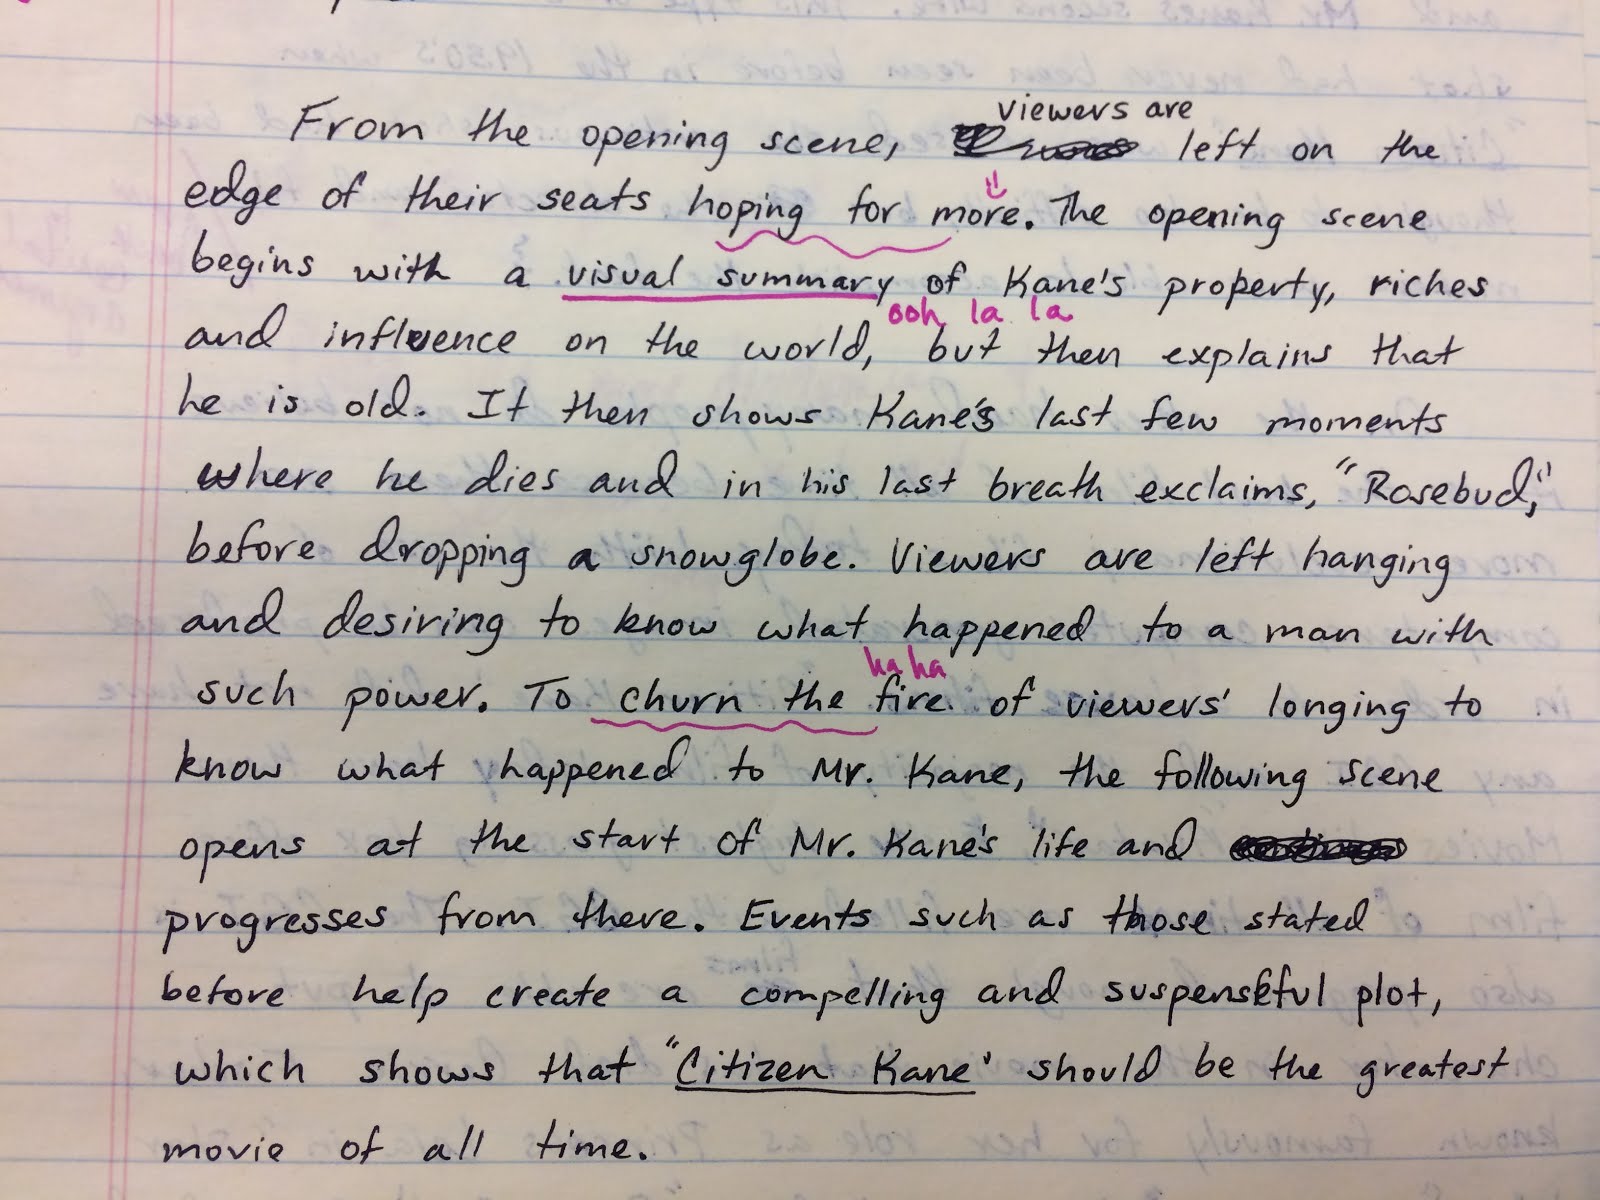 viewers are
From the opening scene, left on the
edge of their seats hoping for more. The opening scene
begins with a visual summary of Kane's property, riches
ooh la la
and influence on the world, but then explains that
he is old. It then shows Kane's last few moments
where he dies and in his last breath exclaims, "Rosebud,"
before dropping a snowglobe. Viewers are left hanging
and desiring to know what happened to a man with
ha ha
such power. To churn the fire of viewers' longing to
know what happened to Mr. Kane, the following scene
opens at the start of Mr. Kane's life and
progresses from there. Events such as those stated
before help create a compelling and suspenseful plot,
which shows that "Citizen Kane" should be the greatest
movie of all time.